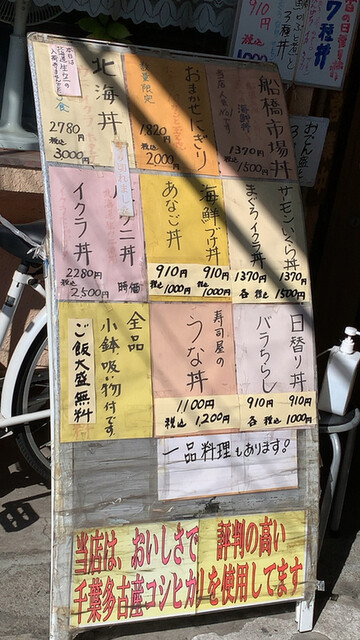 船橋市場丼
当店人気No.1です
海鮮丼
1370円
税込
1500円
おまかせにぎり
数量限定
1820円
税込
2000円
北海丼
2780
税込
3000円
サーモンいくら丼
まぐろイクラ丼
1370 1370円
各 税込 1500円
海鮮づけ丼
910円
税込 1000円
あなご丼
910円
税込 1000円
ウニ丼
時価
イクラ丼
2280円
税込
2,500円
日替り丼
バラちらし
910 910円
各 税込 1000円
寿司屋の
うな丼
1100円
税込 1,200円
全品
小鉢吸い物付です
ご飯大盛無料
一品料理もあります。
当店は、おいしさで 評判の高い
千葉多古産コシヒカリを使用してます